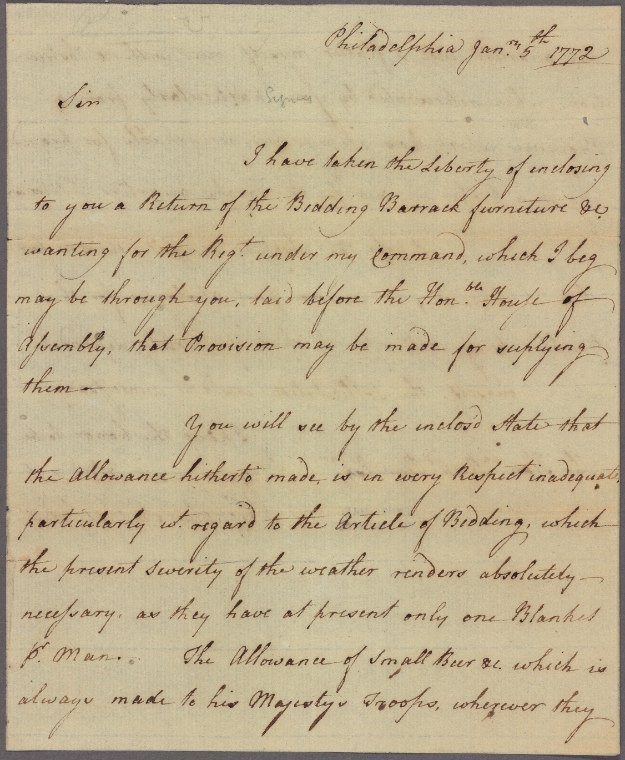 Philadelphia Jan.ry 5th 1772
Sir
I have taken the Liberty of enclosing
to you a Return of the Bedding Barrack furniture &c.
wanting for the Regt. under my Command, which I beg
may be through you, laid before the Hon.ble House of
Assembly, that Provision may be made for suplying
them—
You will see by the inclosd State that
the Allowance hitherto made, is in every Respect inadequate,
particularly wt. regard to the Article of Bedding, which
the present severity of the weather renders absolutely
necessary, as they have at present only one Blanket
pr. Man. The Allowance of Small Beer &c. which is
always made to his Majestys Troops, wherever they